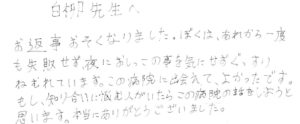 白柳先生へ
お返事おそくなりました。ぼくは、あれから一度
も失敗せず、夜におしっこの事を気にせずぐっすり
ねむれています。この病院に出会えて、よかったです。
もし、知り合いに悩む人がいたらこの病院の話をしようと
思います。本当にありがとうございました。